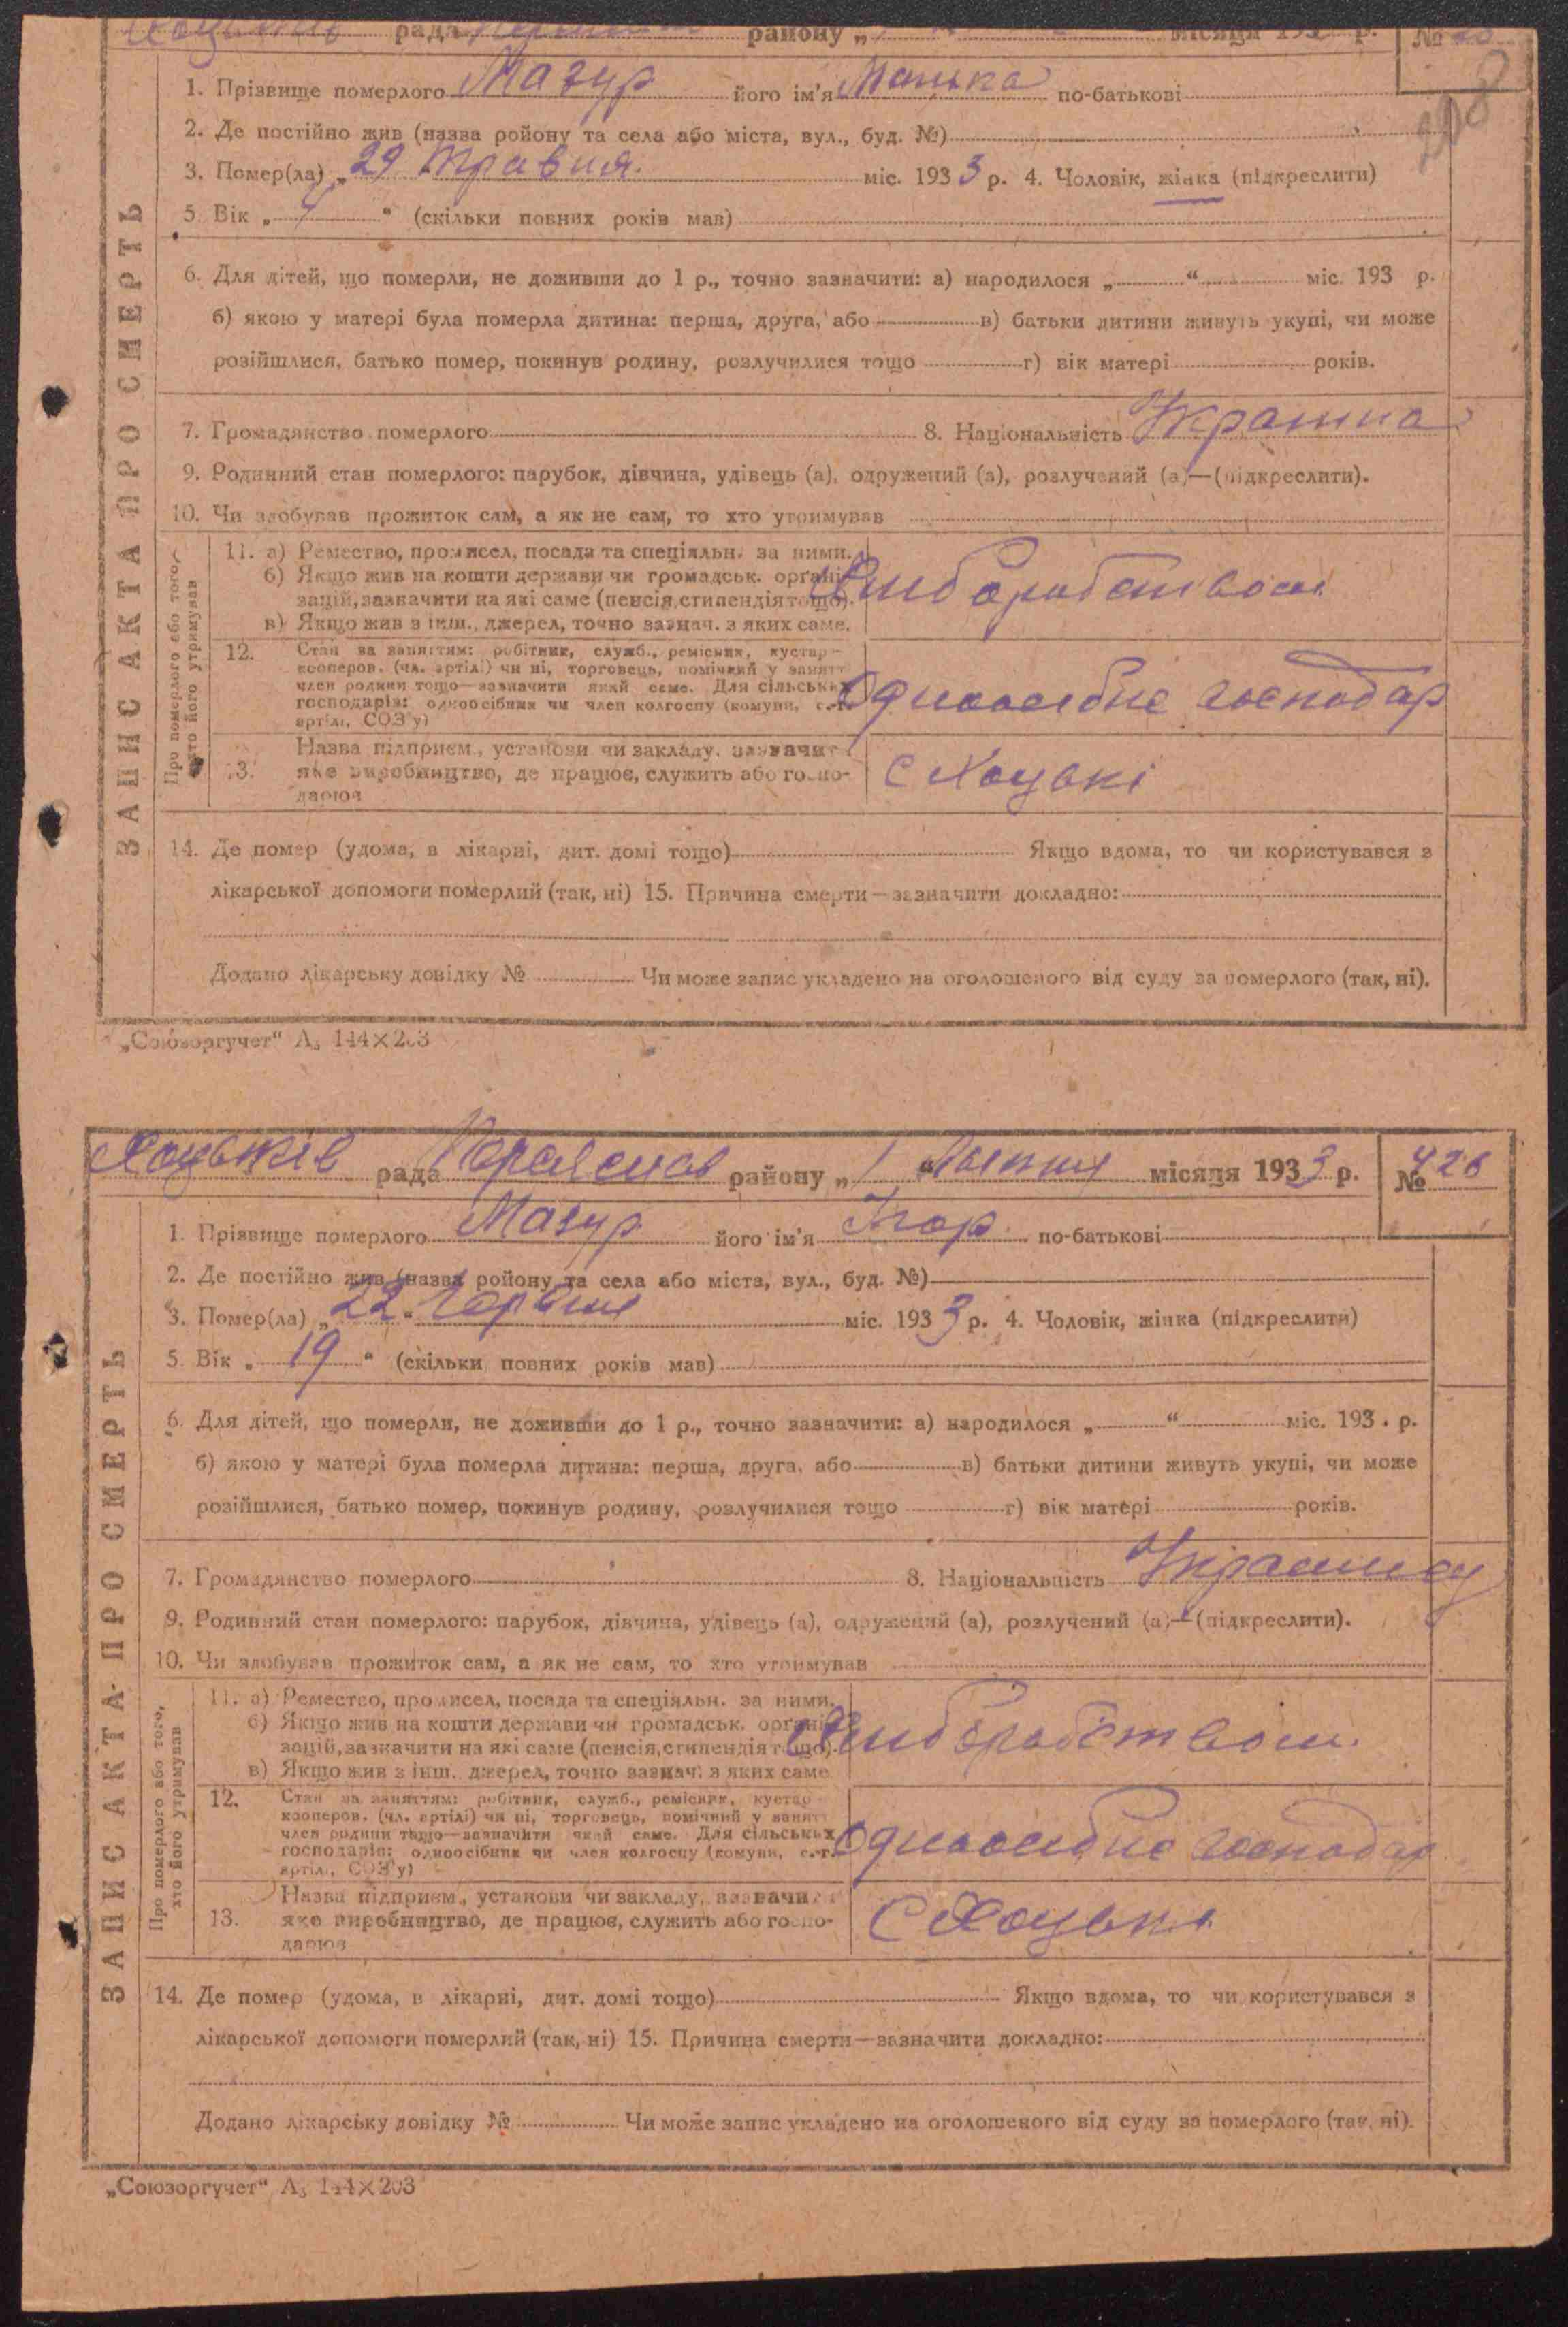 рада району „ місяця 193 р. №
208
ЗАПИС АКТА ПРО СМЕРТЬ
1. Прізвище померлого Мазур його ім'я Манька по-батькові
2. Де постійно жив (назва ройону та села або міста, вул., буд. №)
3. Помер(ла) „29 травня. міс. 1933 р. 4. Чоловік, жінка (підкреслити)
5. Вік „ 4 “ (скільки повних років мав)
6. Для дітей, що померли, не доживши до 1 р., точно зазначити: а) народилося „ “ міс. 193 р.
б) якою у матері була померла дитина: перша, друга, або в) батьки дитини живуть укупі, чи може
розійшлися, батько помер, покинув родину, розлучилися тощо г) вік матері років.
7. Громадянство померлого 8. Національність
9. Родинний стан померлого: парубок, дівчина, удівець (а), одружений (а), розлучений (а)—(підкреслити).
10. Чи здобував прожиток сам, а як не сам, то хто утримував
Про померлого або того, хто його утримував
11. а) Ремество, промисел, посада та спеціяльн. за ними.
б) Якщо жив на кошти держави чи громадськ. органі-
зацій, зазначити на які саме (пенсія, стипендія тощо).
в) Якщо жив з інш. джерел, точно зазнач. з яких саме.
Хліборобством
12. Стан за заняттям: робітник, служб., ремісник, кустар
кооперов. (чл. артілі) чи ні, торговець, помічний у занятт
член родини тощо—зазначити який саме. Для сільських
господарів: одноосібник чи член колгоспу (комуни, с.-г.
артілі, СОЗ'у)
Одноосібне господар
13. Назва підприєм., установи чи закладу, зазначити
яке виробництво, де працює, служить або госпо-
дарює
С Хоцькі
14. Де помер (удома, в лікарні, дит. домі тощо) Якщо вдома, то чи користувався з
лікарської допомоги померлий (так, ні) 15. Причина смерти—зазначити докладно:
Додано лікарську довідку № Чи може запис укладено на оголошеного від суду за померлого (так, ні).
„Союзоргучет“ А₅ 144×203
Хоцьків рада Переяслов району „1“ Липня місяця 1933 р. № 426
ЗАПИС АКТА ПРО СМЕРТЬ
1. Прізвище померлого Мазур його ім'я Ігор по-батькові
2. Де постійно жив (назва ройону та села або міста, вул., буд. №)
3. Помер(ла) „22“ Червня міс. 1933 р. 4. Чоловік, жінка (підкреслити)
5. Вік „ 19 “ (скільки повних років мав)
6. Для дітей, що померли, не доживши до 1 р., точно зазначити: а) народилося „ “ міс. 193 р.
б) якою у матері була померла дитина: перша, друга, або в) батьки дитини живуть укупі, чи може
розійшлися, батько помер, покинув родину, розлучилися тощо г) вік матері років.
7. Громадянство померлого 8. Національність
9. Родинний стан померлого: парубок, дівчина, удівець (а), одружений (а), розлучений (а)—(підкреслити).
10. Чи здобував прожиток сам, а як не сам, то хто утримував
Про померлого або того, хто його утримував
11. а) Ремество, промисел, посада та спеціяльн. за ними.
б) Якщо жив на кошти держави чи громадськ. органі-
зацій, зазначити на які саме (пенсія, стипендія тощо).
в) Якщо жив з інш. джерел, точно зазнач. з яких саме
Хліборобством.
12. Стан за заняттям: робітник, служб., ремісник, кустар
кооперов. (чл. артілі) чи ні, торговець, помічний у занятт
член родини тощо—зазначити який саме. Для сільських
господарів: одноосібник чи член колгоспу (комуни, с.-г.
артілі, СОЗ'у)
Одноосібне господар
13. Назва підприєм., установи чи закладу, зазначити
яке виробництво, де працює, служить або госпо-
дарює
С Хоцькі
14. Де помер (удома, в лікарні, дит. домі тощо) Якщо вдома, то чи користувався з
лікарської допомоги померлий (так, ні) 15. Причина смерти—зазначити докладно:
Додано лікарську довідку № Чи може запис укладено на оголошеного від суду за померлого (так, ні).
„Союзоргучет“ А₅ 144×203